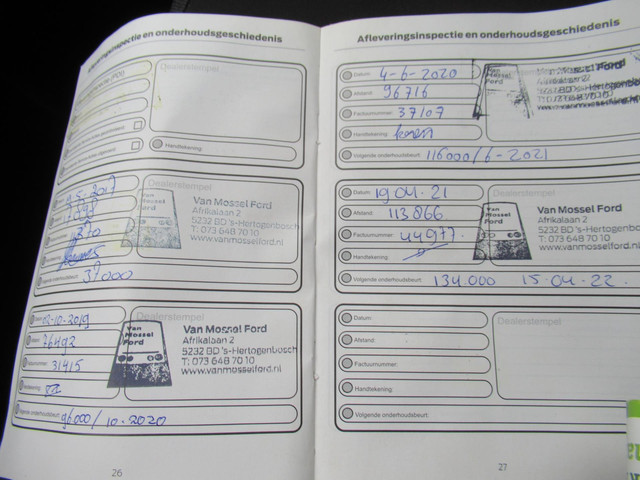 Afleveringsinspectie en onderhoudsgeschiedenis
Dealerstempel
Handtekening:
9.5.2017
Dealerstempel
Van Mossel Ford
Van Mossel Ford
Afrikalaan 2
5232 BD 's-Hertogenbosch
T: 073 648 70 10
www.vanmosselford.nl
37000
02-10-2019
76492
31415
Dealerstempel
Van Mossel Ford
Van Mossel Ford
Afrikalaan 2
5232 BD 's-Hertogenbosch
T: 073 648 70 10
www.vanmosselford.nl
Volgende onderhoudsbeurt: 96000/10-2020
26
Afleveringsinspectie en onderhoudsgeschiedenis
Datum: 4-6-2020
Afstand: 96716
Factuurnummer: 37107
Handtekening:
Volgende onderhoudsbeurt: 116000/6-2021
Van Mossel Ford
Datum: 19.04.21
Afstand: 113866
Factuurnummer: 44977
Handtekening:
Volgende onderhoudsbeurt: 134.000 15-04-22.
Dealerstempel
Van Mossel Ford
Van Mossel Ford
Afrikalaan 2
5232 BD 's-Hertogenbosch
T: 073 648 70 10
www.vanmosselford.nl
Datum:
Afstand:
Factuurnummer:
Handtekening:
Volgende onderhoudsbeurt:
Dealerstempel
27